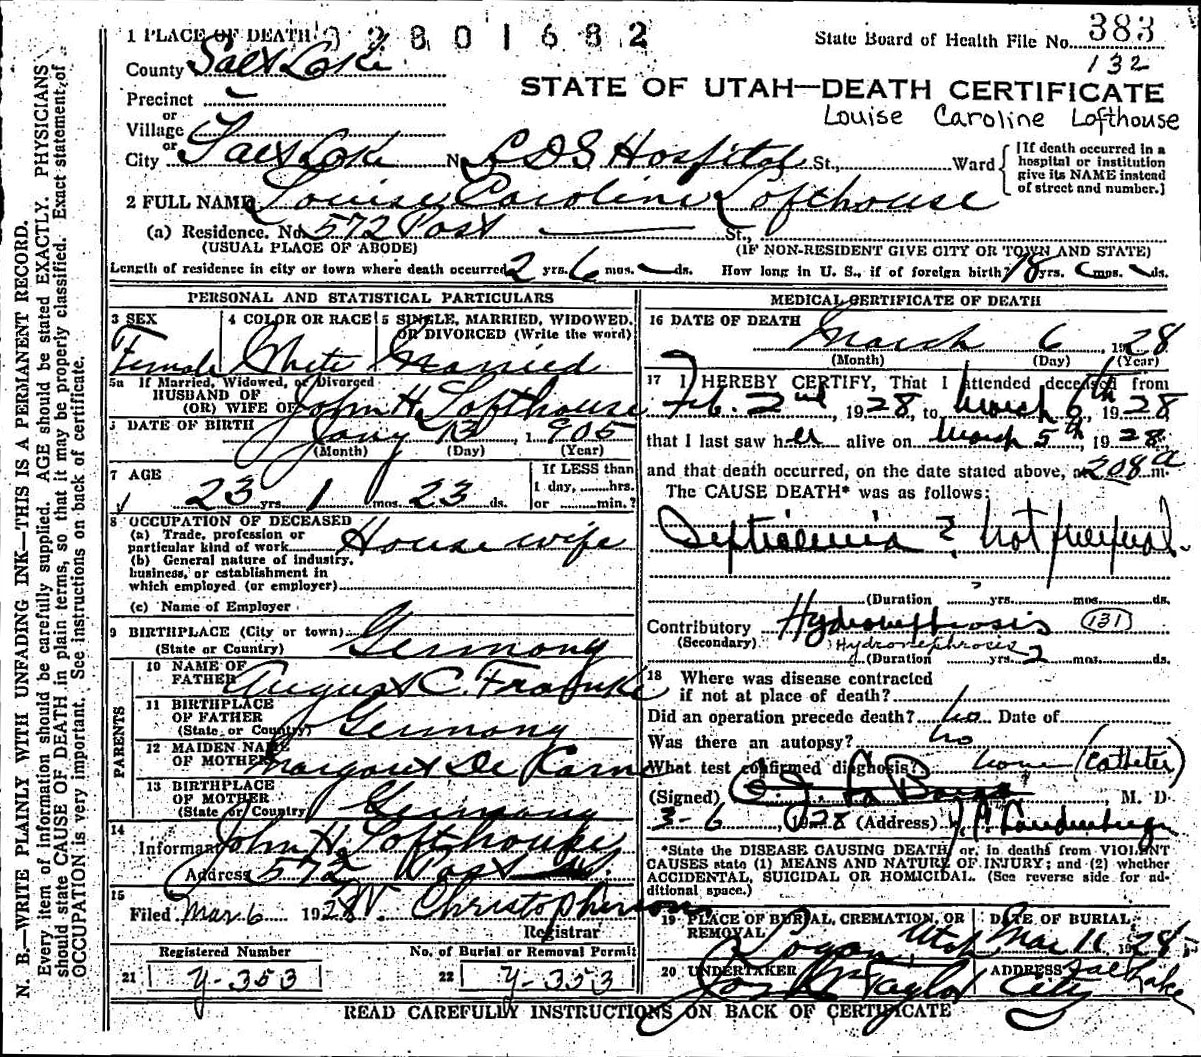 N. B.—WRITE PLAINLY WITH UNFADING INK—THIS IS A PERMANENT RECORD.
Every item of information should be carefully supplied. AGE should be stated EXACTLY. PHYSICIANS
should state CAUSE OF DEATH in plain terms, so that it may be properly classified. Exact statement of
OCCUPATION is very important. See instructions on back of certificate.
1 PLACE OF DEATH 02801682
State Board of Health File No. 383
132
County Salt Lake
STATE OF UTAH—DEATH CERTIFICATE
Precinct
or
Louise Caroline Lofthouse
Village
or
City Salt Lake N L D S Hospital St., Ward
[If death occurred in a
hospital or institution
give its NAME instead
of street and number.]
2 FULL NAME Louise Caroline Lofthouse
(a) Residence. No. 572 Post St.,
(USUAL PLACE OF ABODE) (IF NON-RESIDENT GIVE CITY OR TOWN AND STATE)
Length of residence in city or town where death occurred 2 yrs. 6 mos. ds. How long in U. S., if of foreign birth? 18 yrs. mos. ds.
PERSONAL AND STATISTICAL PARTICULARS
3 SEX 4 COLOR OR RACE 5 SINGLE, MARRIED, WIDOWED,
OR DIVORCED (Write the word)
Female White Married
5a If Married, Widowed, or Divorced
HUSBAND OF
(OR) WIFE OF John H. Lofthouse
DATE OF BIRTH Jany 13, 1905
(Month) (Day) (Year)
7 AGE
23 yrs. 1 mos. 23 ds.
If LESS than
1 day, hrs.
or min.?
8 OCCUPATION OF DECEASED
(a) Trade, profession or
particular kind of work House wife
(b) General nature of industry,
business, or establishment in
which employed (or employer)
(c) Name of Employer
9 BIRTHPLACE (City or town)
(State or Country) Germany
PARENTS
10 NAME OF
FATHER August C. Franke
11 BIRTHPLACE
OF FATHER
(State or Country) Germany
12 MAIDEN NAME
OF MOTHER Margaret De
13 BIRTHPLACE
OF MOTHER
(State or Country) Germany
14
Informant John H. Lofthouse
Address 572 Post St.
15
Filed Mar 6 1928 W. Christopherson
Registrar
Registered Number No. of Burial or Removal Permit
21 Y-353 22 Y-353
MEDICAL CERTIFICATE OF DEATH
16 DATE OF DEATH
March 6 1928
(Month) (Day) (Year)
17 I HEREBY CERTIFY, That I attended deceased from
Feb. 2nd, 1928, to March 6th, 1928
that I last saw her alive on March 5th, 1928
and that death occurred, on the date stated above, at 208 a m.
The CAUSE DEATH* was as follows:
Septicemia ? not puerperal.
(Duration yrs. mos. ds.
Contributory Hydronephrosis (131)
(Secondary) Hydronephrosis
(Duration yrs. 2 mos. ds.
18 Where was disease contracted
if not at place of death?
Did an operation precede death? no Date of
Was there an autopsy? no
What test confirmed diagnosis? none (Catheter)
(Signed) M. D
3-6, 1928 (Address)
*State the DISEASE CAUSING DEATH, or, in deaths from VIOLENT
CAUSES state (1) MEANS AND NATURE OF INJURY; and (2) whether
ACCIDENTAL, SUICIDAL OR HOMICIDAL. (See reverse side for ad-
ditional space.)
19 PLACE OF BURIAL, CREMATION, OR
REMOVAL
Logan, Utah
DATE OF BURIAL
Mar 11 1928
20 UNDERTAKER
Jos Wm Taylor
ADDRESS Salt Lake
City
READ CAREFULLY INSTRUCTIONS ON BACK OF CERTIFICATE